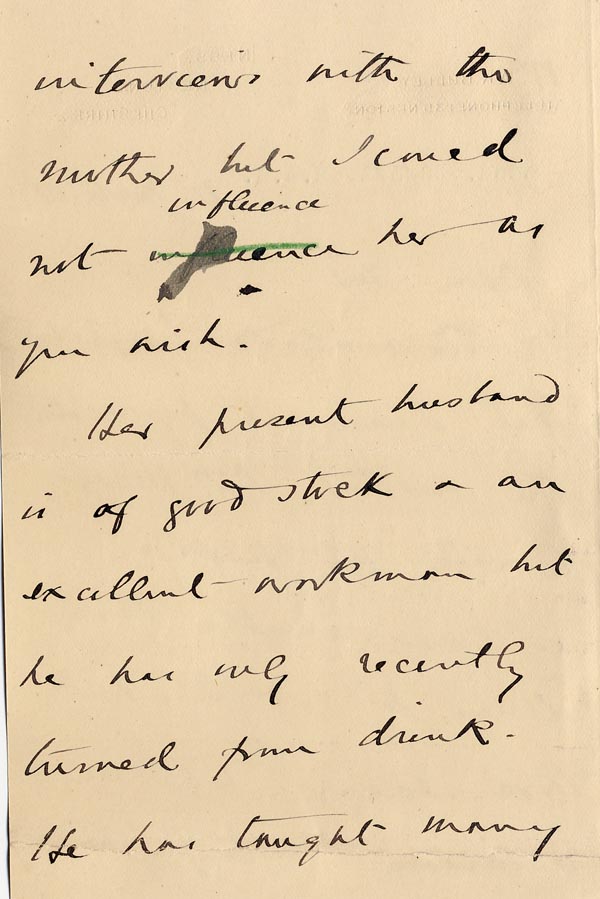 interviews with the
mother but I could
influence
not influence her as
you wish.
Her present husband
is of good stock & an
excellent workman but
he has only recently
turned from drink.
He has taught many